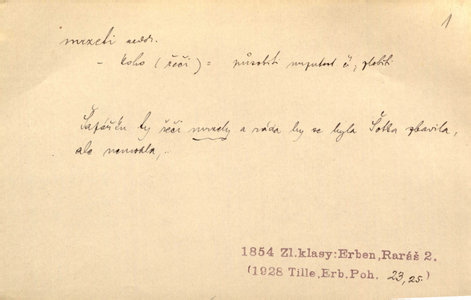 1
mrzeti nedok.
- koho (řečí) = působiti mrzutost č., zlobiti
Šafářku ty řeči mrzely a ráda by se byla Šotka zbavila,
ale nemohla,..
1854 Zl.klasy:Erben,Raráš 2.
(1928 Tille,Erb.Poh. 23,25.)